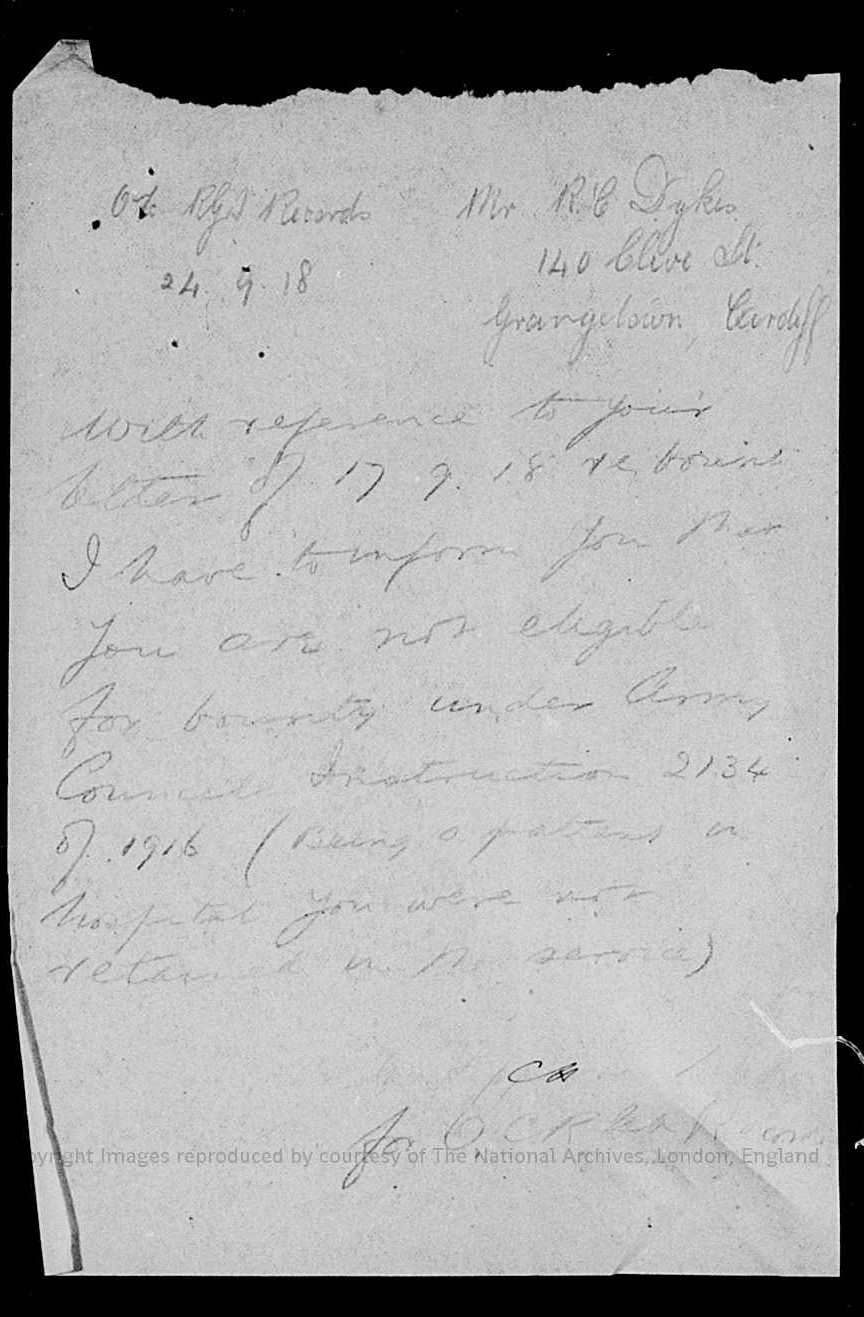 O i/c RGA Records
Mr R.C Dykes
24. 9. 18
140 Clive St.
Grangetown, Cardiff
With reference to your
letter of 17 9. 18 re bount
I have to inform you that
you are not eligible
for bounty under Army
Council Instruction 2134
of 1916 (Being a patient in
hospital you were not
retained in the service)
for Records
Copyright Images reproduced by courtesy of The National Archives, London, England